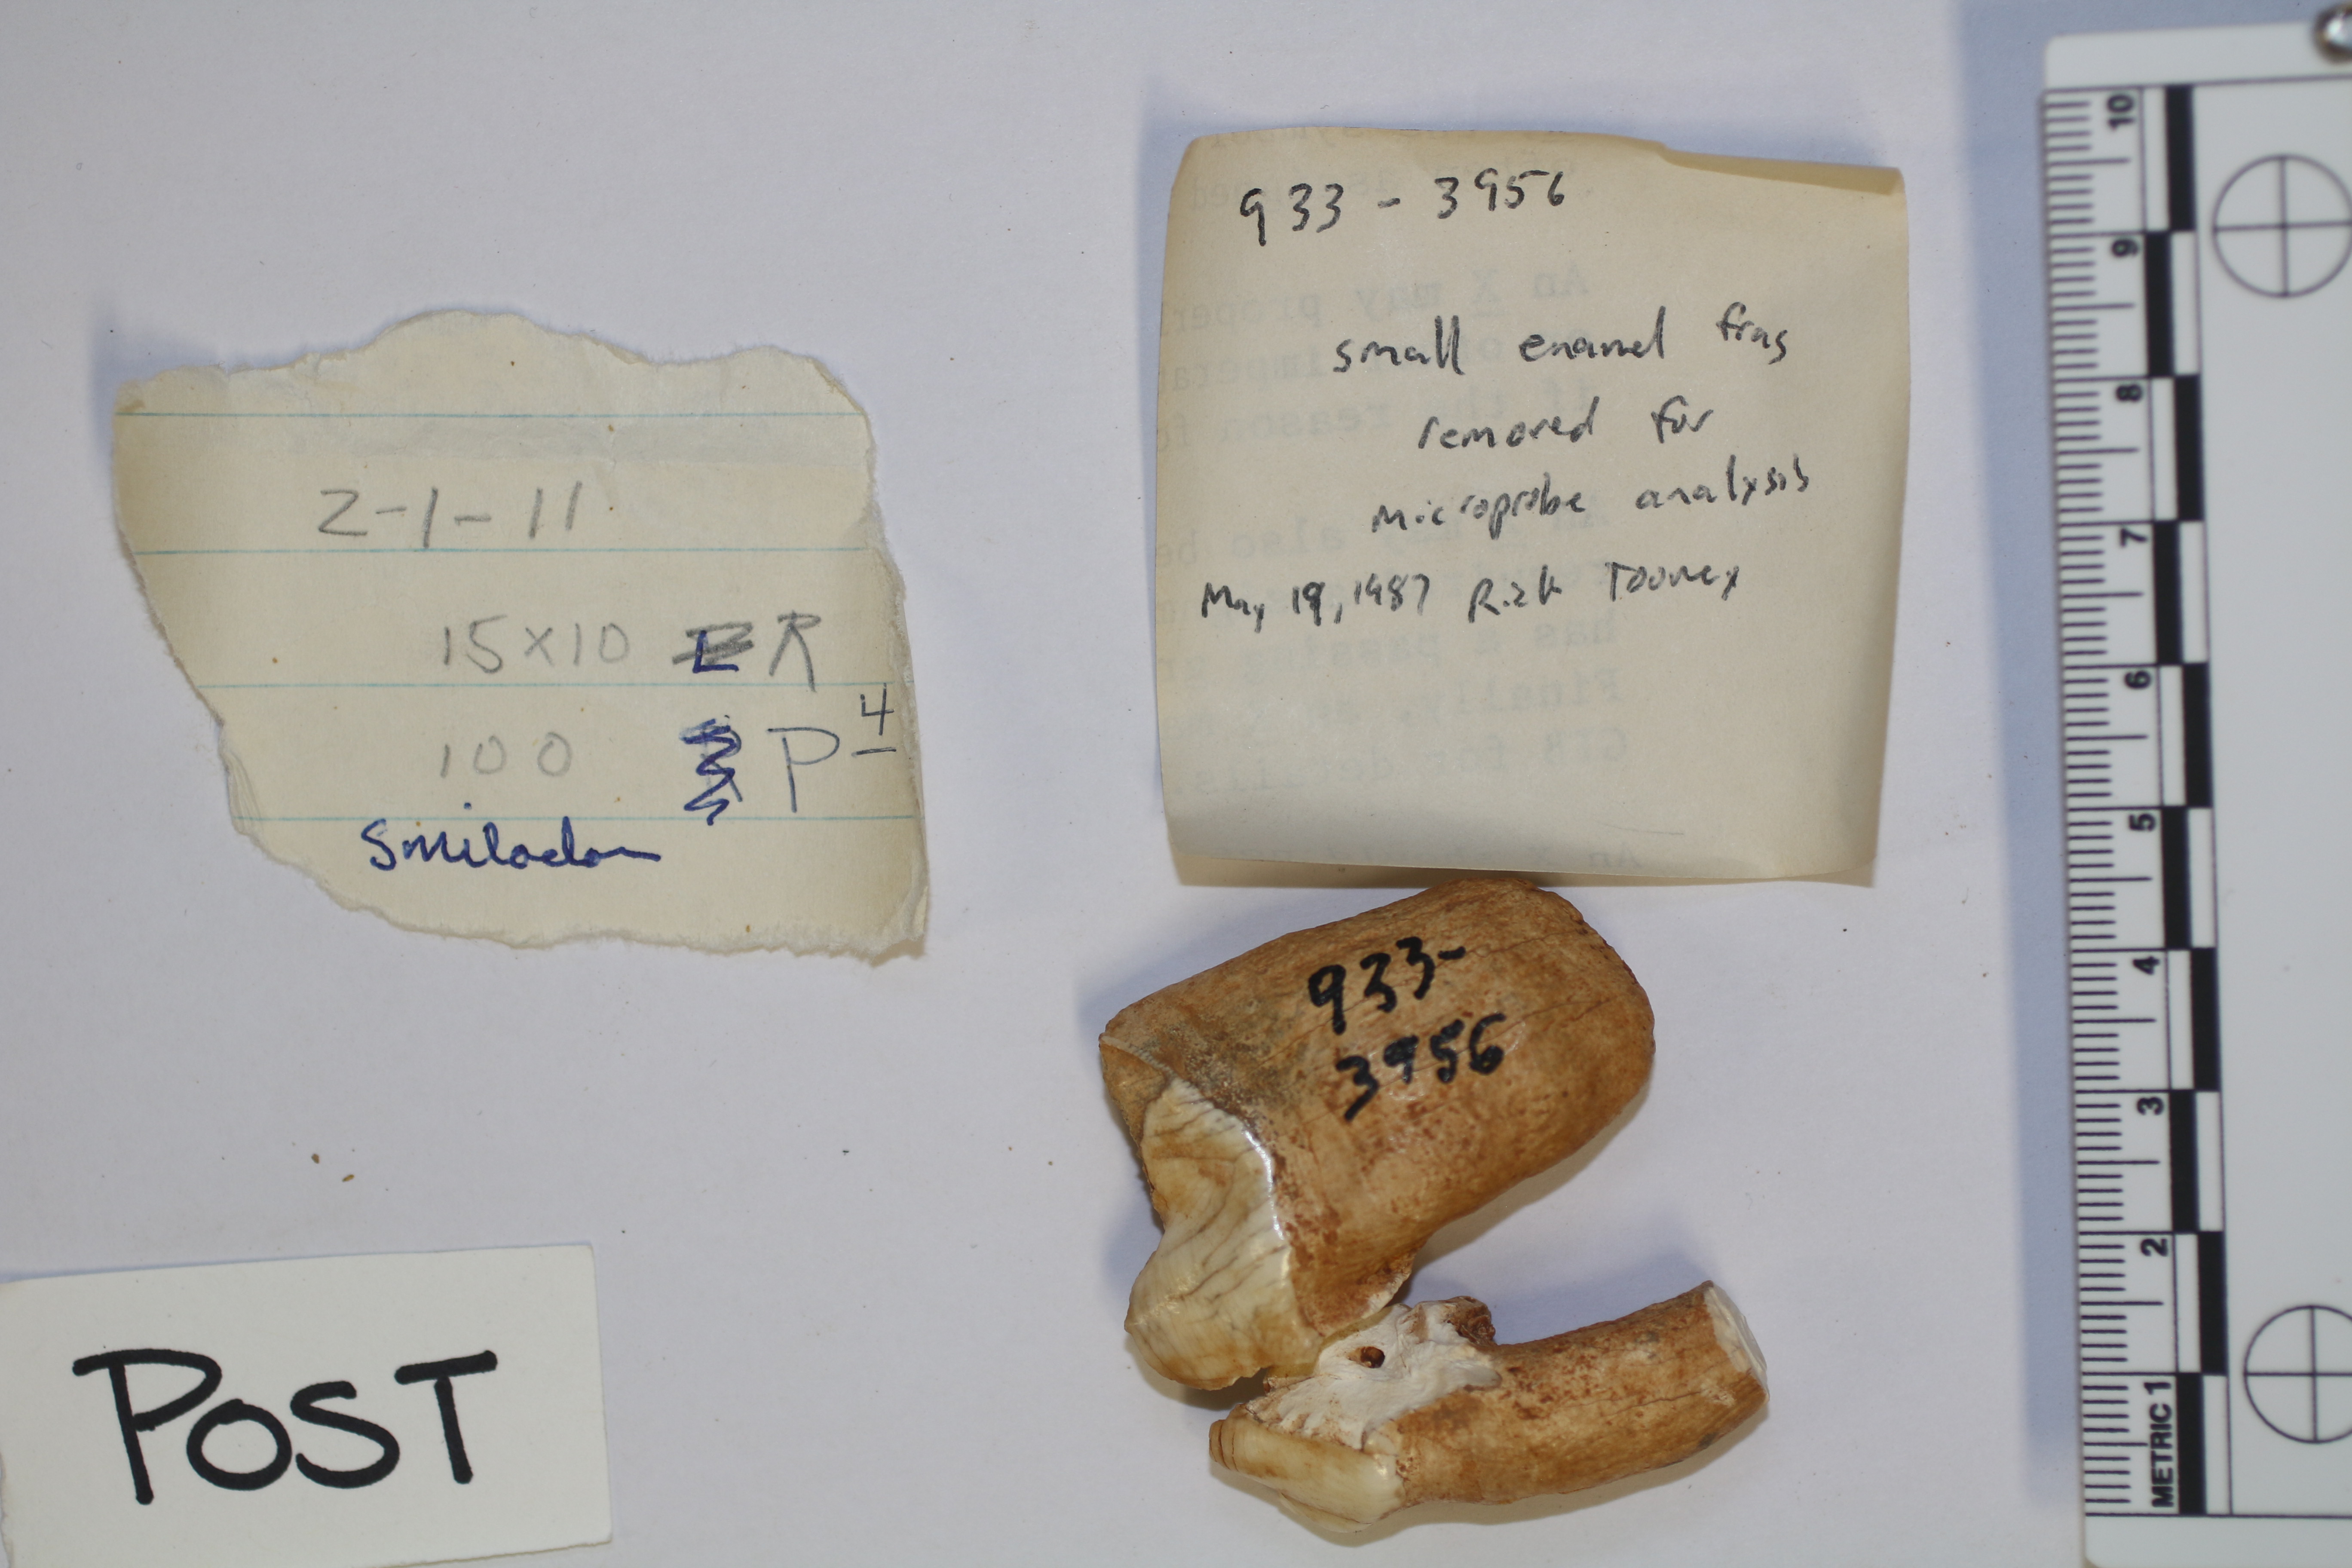 2-1-11
15x10 R
100 P 4
Smilodon
933-3956
small enamel frag
removed for
microprobe analysis
May 19, 1987 Rick Toomey
933-
3956
POST
10
9
8
7
6
5
4
3
2
METRIC 1